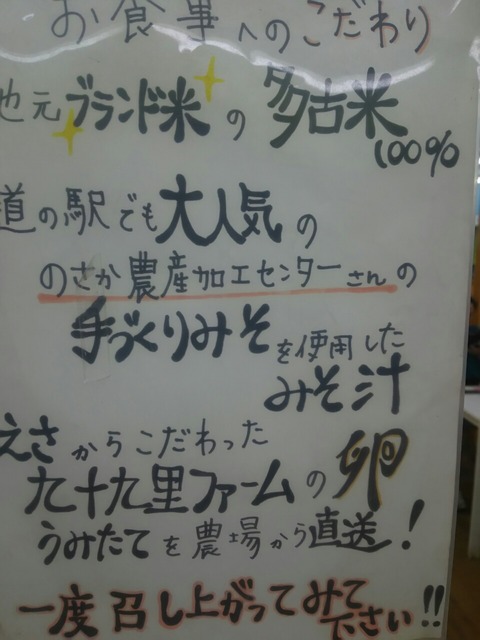 お食事へのこだわり
地元ブランド米の多古米
100%
道の駅でも大人気の
のさか農産加工センターさんの
手づくりみそを使用した
みそ汁
えさからこだわった
九十九里ファームの卵
うみたてを農場から直送!
一度召し上がってみて
下さい!!